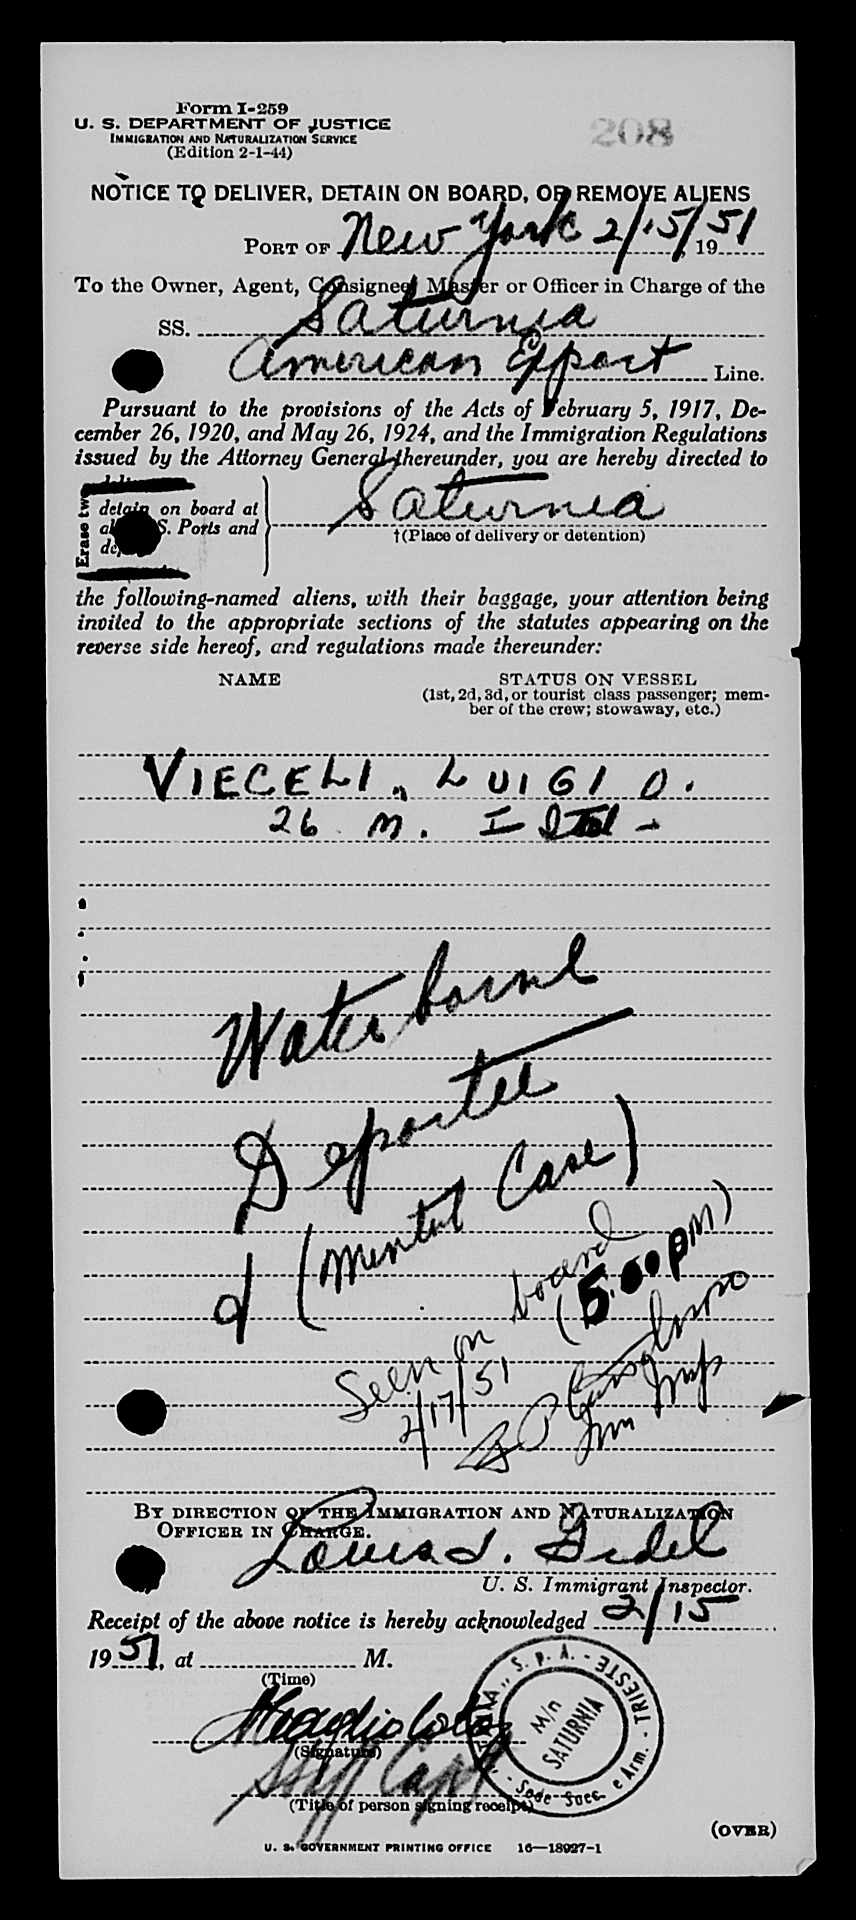 Form I-259
U. S. DEPARTMENT OF JUSTICE
IMMIGRATION AND NATURALIZATION SERVICE
(Edition 2-1-44)
208
NOTICE TO DELIVER, DETAIN ON BOARD, OR REMOVE ALIENS
PORT OF New York 2/15/, 19 51
To the Owner, Agent, Consignee, Master or Officer in Charge of the
SS. Saturnia
American Export Line.
Pursuant to the provisions of the Acts of February 5, 1917, De-
cember 26, 1920, and May 26, 1924, and the Immigration Regulations
issued by the Attorney General thereunder, you are hereby directed to
Erase two
detain on board at
S. Ports and
Saturnia
†(Place of delivery or detention)
the following-named aliens, with their baggage, your attention being
invited to the appropriate sections of the statutes appearing on the
reverse side hereof, and regulations made thereunder:
NAME
STATUS ON VESSEL
(1st, 2d, 3d, or tourist class passenger; mem-
ber of the crew; stowaway, etc.)
VIECELI, LUIGI O.
26 M.
Waterborne
Deportee
(Mental Case)
Seen on board (5.00 PM)
2/17/51
BY DIRECTION OF THE IMMIGRATION AND NATURALIZATION
OFFICER IN CHARGE.
Louis J.
U. S. Immigrant Inspector.
Receipt of the above notice is hereby acknowledged 2/15
19 51, at M.
(Time)
(Signature)
Staff Capt
(Title of person signing receipt)
S. p. A. - TRIESTE
M/n
SATURNIA
Sede Succ. e Arm.
(OVER)
U. S. GOVERNMENT PRINTING OFFICE 16—18927-1